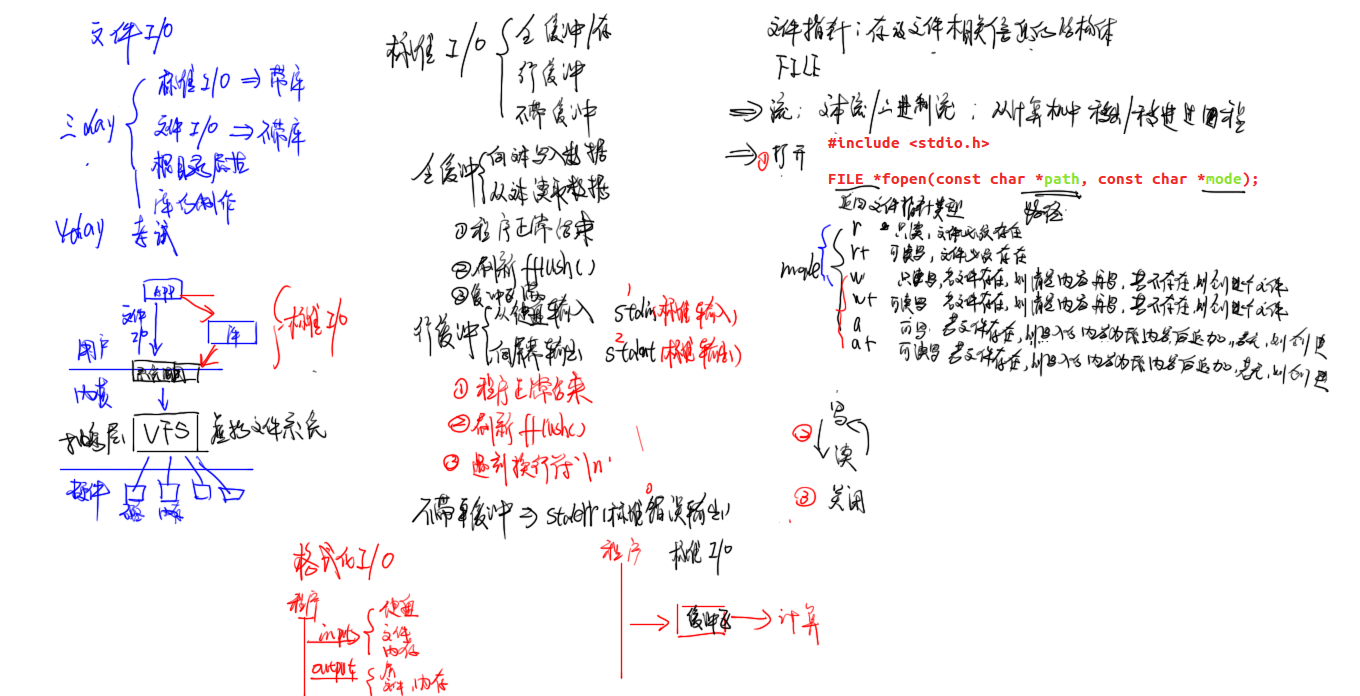 文件 I/O
三day
标准 I/O ⇒ 带库
文件 I/O ⇒ 不带库
库的制作
4day 考试
APP
文件
库
标准 I/O
用户
内核
VFS 虚拟文件系统
硬件
标准 I/O
全缓冲/存
行缓冲
不带缓冲
全缓冲
向文本写入数据
从文本读取数据
① 程序正常结束
② 刷新 fflush()
③ 缓冲区满
行缓冲
从键盘输入 stdin(标准输入)
1
向屏幕输出 stdout(标准输出)
2
① 程序正常结束
② 刷新 fflush()
③ 遇到换行符'\n'
不带缓冲 ⇒ stderr(标准错误输出)
格式化 I/O
程序
input
键盘
文件
内存
output
文件、内存
程序 标准 I/O
缓冲区
计算
文件指针：存放文件相关信息的结构体
FILE
⇒ 流：文本流/二进制流：从计算机中移出/移进过程
⇒ ① 打开
#include <stdio.h>
FILE *fopen(const char *path, const char *mode);
返回文件指针类型 路径
mode
r 只读，文件必须存在
r+ 可读写，文件必须存在
w 只写，若文件存在，则清空内容再写，若不存在，则创建文件
w+ 可读写 若文件存在，则清空内容再写，若不存在，则创建文件
a 可写，若文件存在，则
a+ 可读写 若文件存在，则
② 写
读
③ 关闭